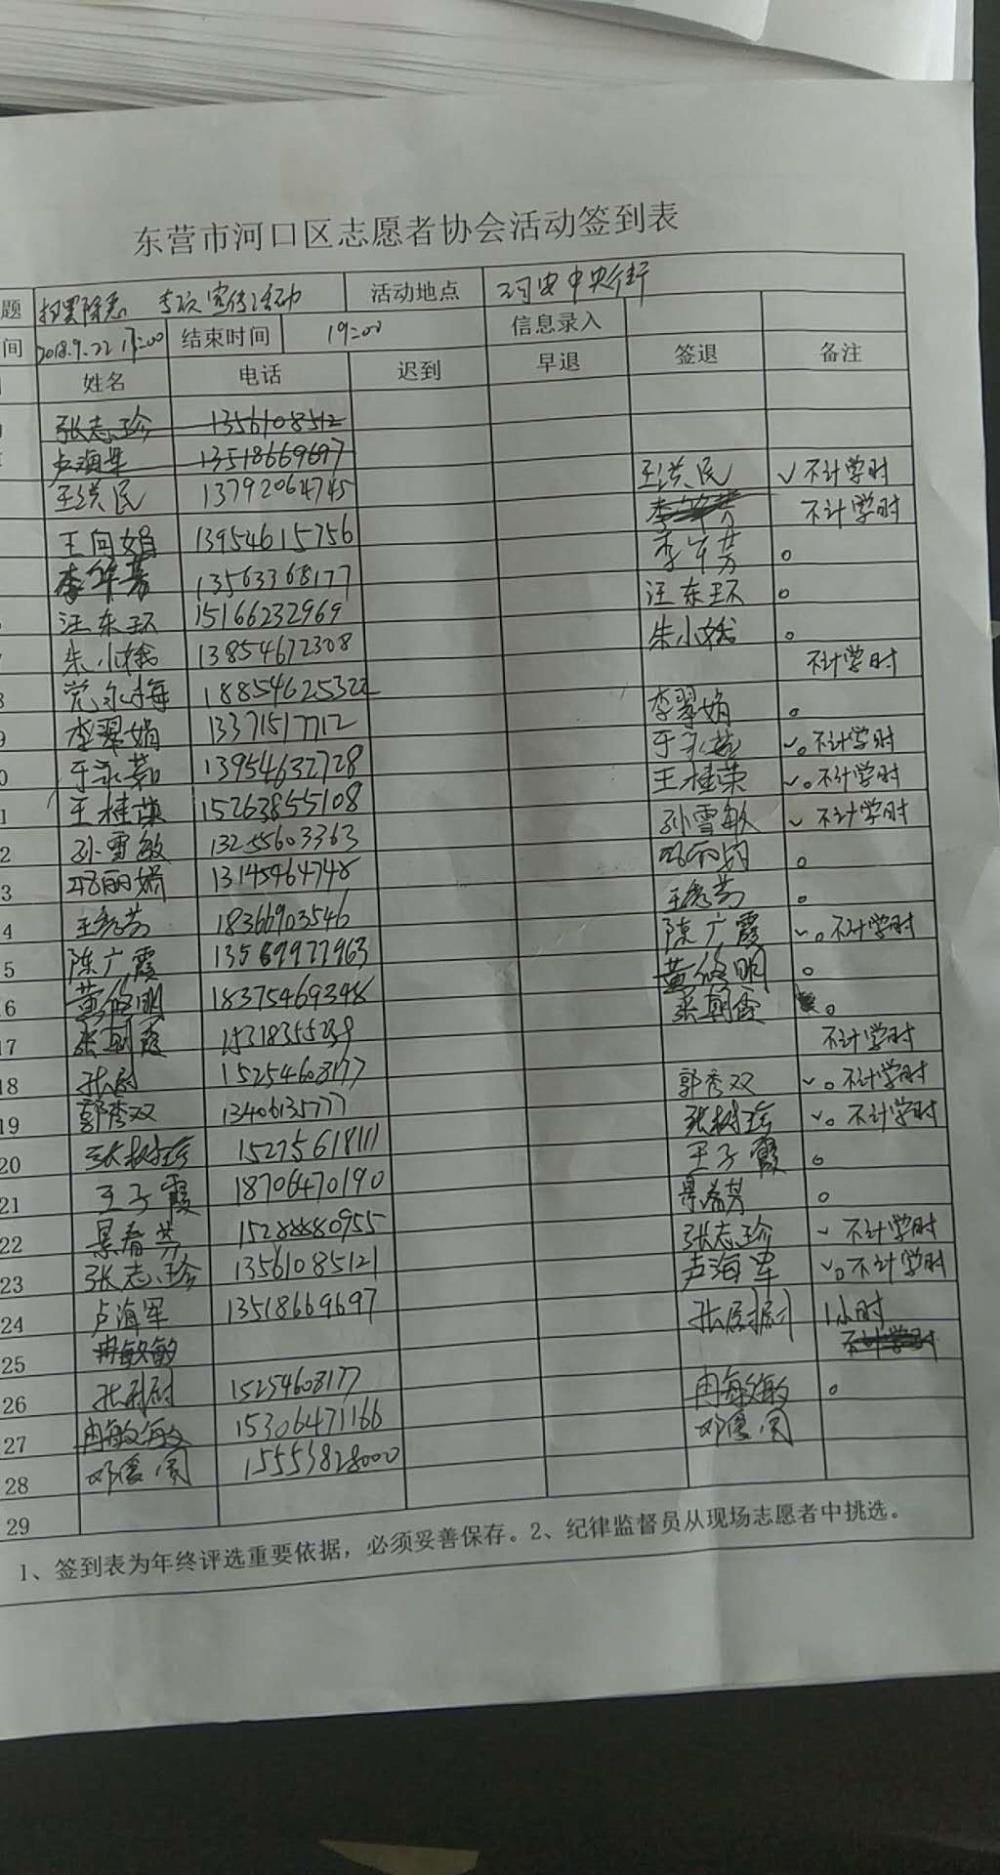 东营市河口区志愿者协会活动签到表
题 扫黑除恶 专项宣传活动 活动地点 河安中央街
间 2018.9.22 17:00 结束时间 19:00 信息录入
姓名 电话 迟到 早退 签退 备注
张志珍 1356108512
卢海军 13518669697
王洪民 13792064745 王洪民 √不计学时
王向娟 13954615756 不计学时
李华芳 13563368177 李华芳 。
汪东环 15166232969 汪东环 。
朱小娥 13854672308 朱小娥 。
8 党永梅 18854625322 不计学时
9 李翠娟 13371517712 李翠娟 。
0 于永茹 13954632728 于永茹 √。不计学时
1 王桂荣 15263855108 王桂荣 √。不计学时
2 孙雪敏 13255603363 孙雪敏 √不计学时
3 丽娟 13145464748 。
4 王秀芳 18366903546 王秀芳 。
5 陈广霞 13589977963 陈广霞 √。不计学时
6 黄俊明 18375469348 黄俊明 。
17 张朝霞 15318355239 张朝霞 。
18 张尉 15254608177 不计学时
19 郭秀双 13406135777 郭秀双 √。不计学时
20 张树珍 15275618111 张树珍 √。不计学时
21 王子霞 18706470190 王子霞 。
22 景春芳 15288880955 景春芳 。
23 张志珍 13561085121 张志珍 √不计学时
24 卢海军 13518669697 卢海军 √。不计学时
25 冉敏敏
26 张尉 15254608177 1小时
不计学时
27 冉敏敏 15306471166 冉敏敏 。
28 邓 15553828000 邓
29
1、签到表为年终评选重要依据，必须妥善保存。2、纪律监督员从现场志愿者中挑选。